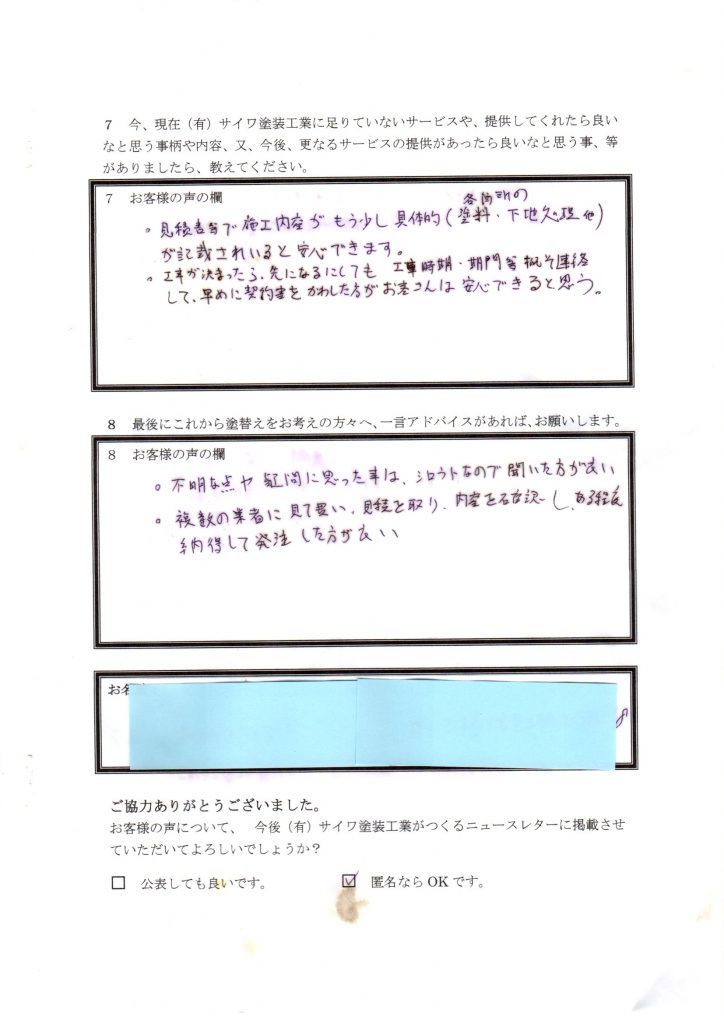 7 今、現在（有）サイワ塗装工業に足りていないサービスや、提供してくれたら良い
なと思う事柄や内容、又、今後、更なるサービスの提供があったら良いなと思う事、等
がありましたら、教えてください。
7 お客様の声の欄
各箇所の
。見積書等で施工内容がもう少し具体的(塗料・下地処理他)
が記載されいると安心できます。
。工事が決まったら、先になるにしても 工事時期・期間等概そ連絡
して、早めに契約書をかわした方がお客さんは安心できると思う。
8 最後にこれから塗替えをお考えの方々へ、一言アドバイスがあれば、お願いします。
8 お客様の声の欄
。不明な点や疑問に思った事は、シロウトなので聞いた方が良い
。複数の業者に見て貰い、見積を取り、内容を確認し、ある程度
納得して発注した方が良い
お名
ご協力ありがとうございました。
お客様の声について、 今後（有）サイワ塗装工業がつくるニュースレターに掲載させ
ていただいてよろしいでしょうか？
□ 公表しても良いです。 ☑ 匿名なら OK です。